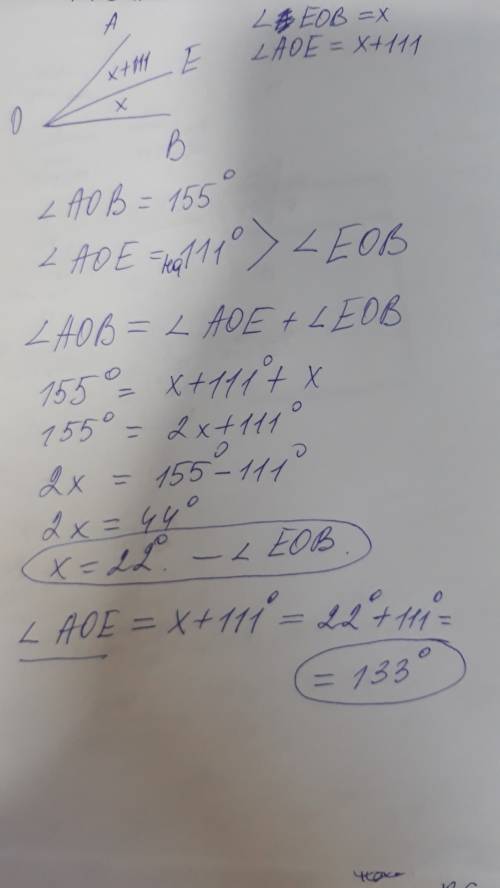 ∠EOB = x
∠AOE = x+111
A
x+111
E
x
O
B
∠AOB = 155°
∠AOE = на 111° > ∠EOB
∠AOB = ∠AOE + ∠EOB
155° = x+111° + x
155° = 2x+111°
2x = 155° - 111°
2x = 44°
x = 22°. — ∠EOB.
∠AOE = x+111° = 22°+111° =
= 133°